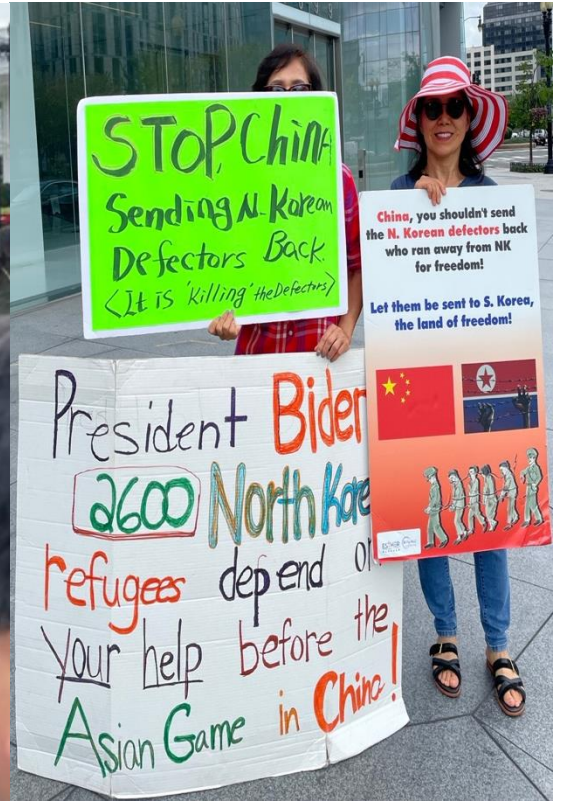 STOP, China
Sending N-Korean
Defectors Back.
<It is 'Killing' the Defectors>
China, you shouldn't send
the N. Korean defectors back
who ran away from NK
for freedom!
Let them be sent to S. Korea,
the land of freedom!
President Biden
2600 North Kore
refugees depend on
your help before the
Asian Game in China!